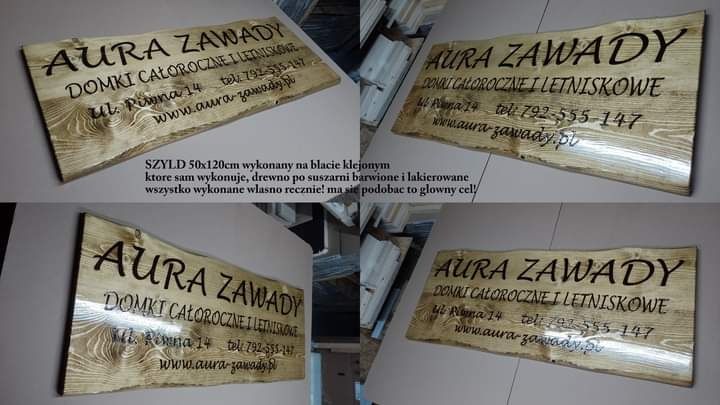 AURA ZAWADY
DOMKI CAŁOROCZNE I LETNISKOWE
ul. Piwna 14 tel: 792-555-147
www.aura-zawady.pl
AURA ZAWADY
DOMKI CAŁOROCZNE I LETNISKOWE
ul Piwna 14 tel: 792-555-147
www.aura-zawady.pl
SZYLD 50x120cm wykonany na blacie klejonym
ktore sam wykonuje, drewno po suszarni barwione i lakierowane
wszystko wykonane wlasno recznie! ma się podobac to glowny cel!
AURA ZAWADY
DOMKI CAŁOROCZNE I LETNISKOWE
ul. Piwna 14 tel: 792-555-147
www.aura-zawady.pl
AURA ZAWADY
DOMKI CAŁOROCZNE I LETNISKOWE
ul Piwna 14 tel: 792-555-147
www.aura-zawady.pl